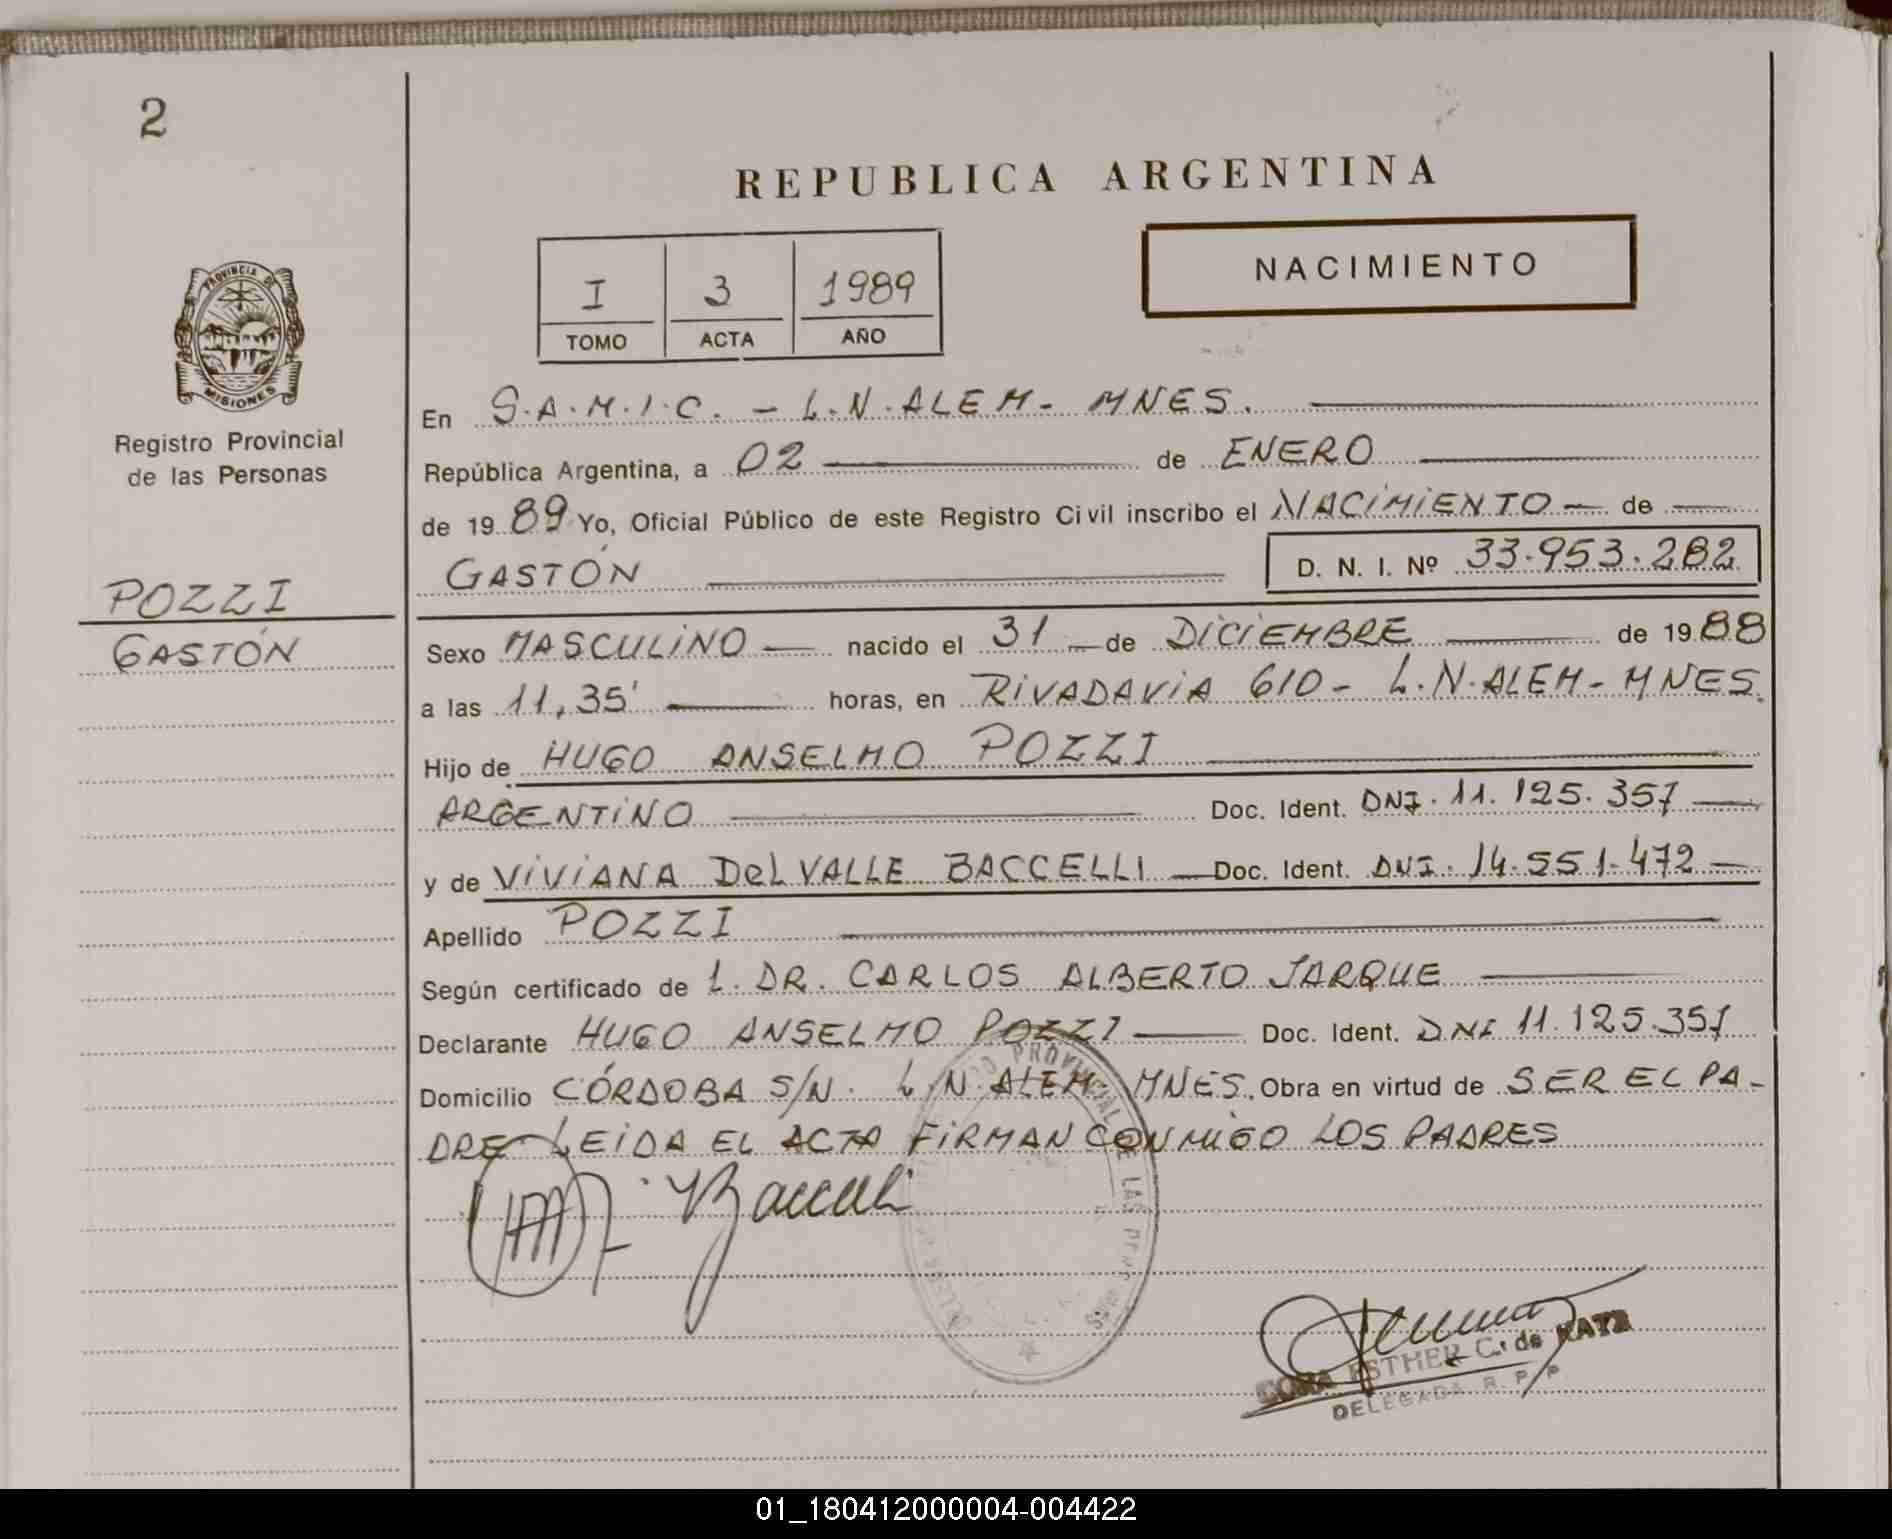 2
REPUBLICA ARGENTINA
I 3 1989
TOMO ACTA AÑO
NACIMIENTO
PROVINCIA DE
MISIONES
Registro Provincial
de las Personas
POZZI
GASTÓN
En S.A.M.I.C. - L.N.ALEM - MNES.
República Argentina, a 02 de ENERO
de 1989 Yo, Oficial Público de este Registro Civil inscribo el NACIMIENTO de
GASTÓN D. N. I. Nº 33.953.282
Sexo MASCULINO nacido el 31 de DICIEMBRE de 1988
a las 11,35' horas, en RIVADAVIA 610 - L.N.ALEM - MNES.
Hijo de HUGO ANSELMO POZZI
ARGENTINO Doc. Ident. DNI. 11.125.357
y de VIVIANA DEL VALLE BACCELLI Doc. Ident. DNI. 14.551.472
Apellido POZZI
Según certificado de 1. DR. CARLOS ALBERTO JARQUE
Declarante HUGO ANSELMO POZZI Doc. Ident. DNI 11.125.357
Domicilio CÓRDOBA S/N. L.N.ALEM - MNES. Obra en virtud de SER EL PA-
DRE. LEIDA EL ACTA FIRMAN CONMIGO LOS PADRES
Baccelli
PROVINCIAL DE LAS
ESTHER C. de KATZ
DELEGADA R. P. P.
01_180412000004-004422